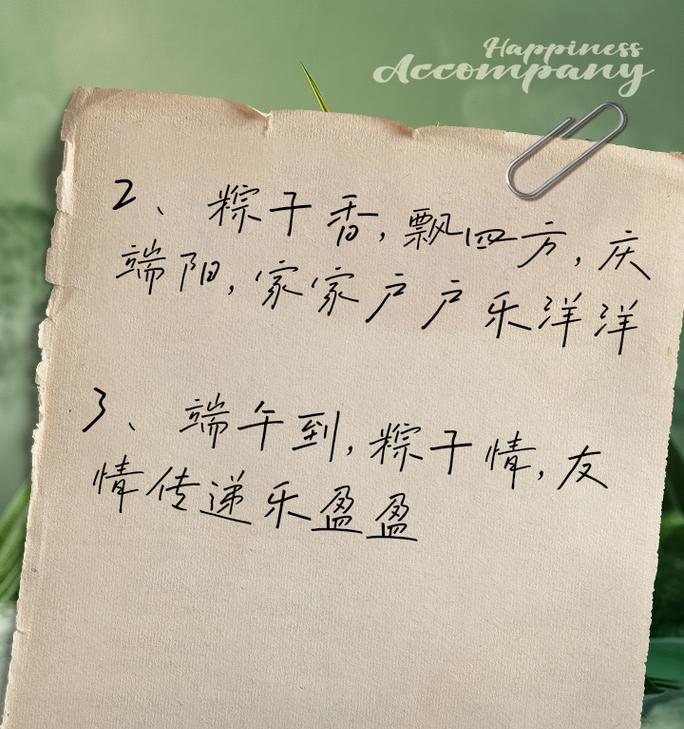 Happiness
Accompany
2、粽子香,飘四方,庆
端阳,家家户户乐洋洋
3、端午到,粽子情,友
情传递乐盈盈